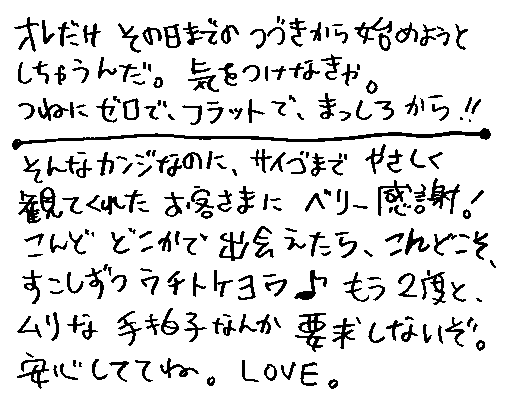 オレだけ その日までの つづきから始めようと
しちゃうんだ。 気をつけなきゃ。
つねに ゼロで、フラットで、まっしろから!!
そんなカンジなのに、サイゴまで やさしく
観てくれた お客さまに ベリー感謝!
こんど どこかで 出会えたら、これどこそ、
すこしずつ ウチトケヨウ♪ もう2度と、
ムリな 手拍子なんか 要求しないぞ。
安心しててね。 LOVE。